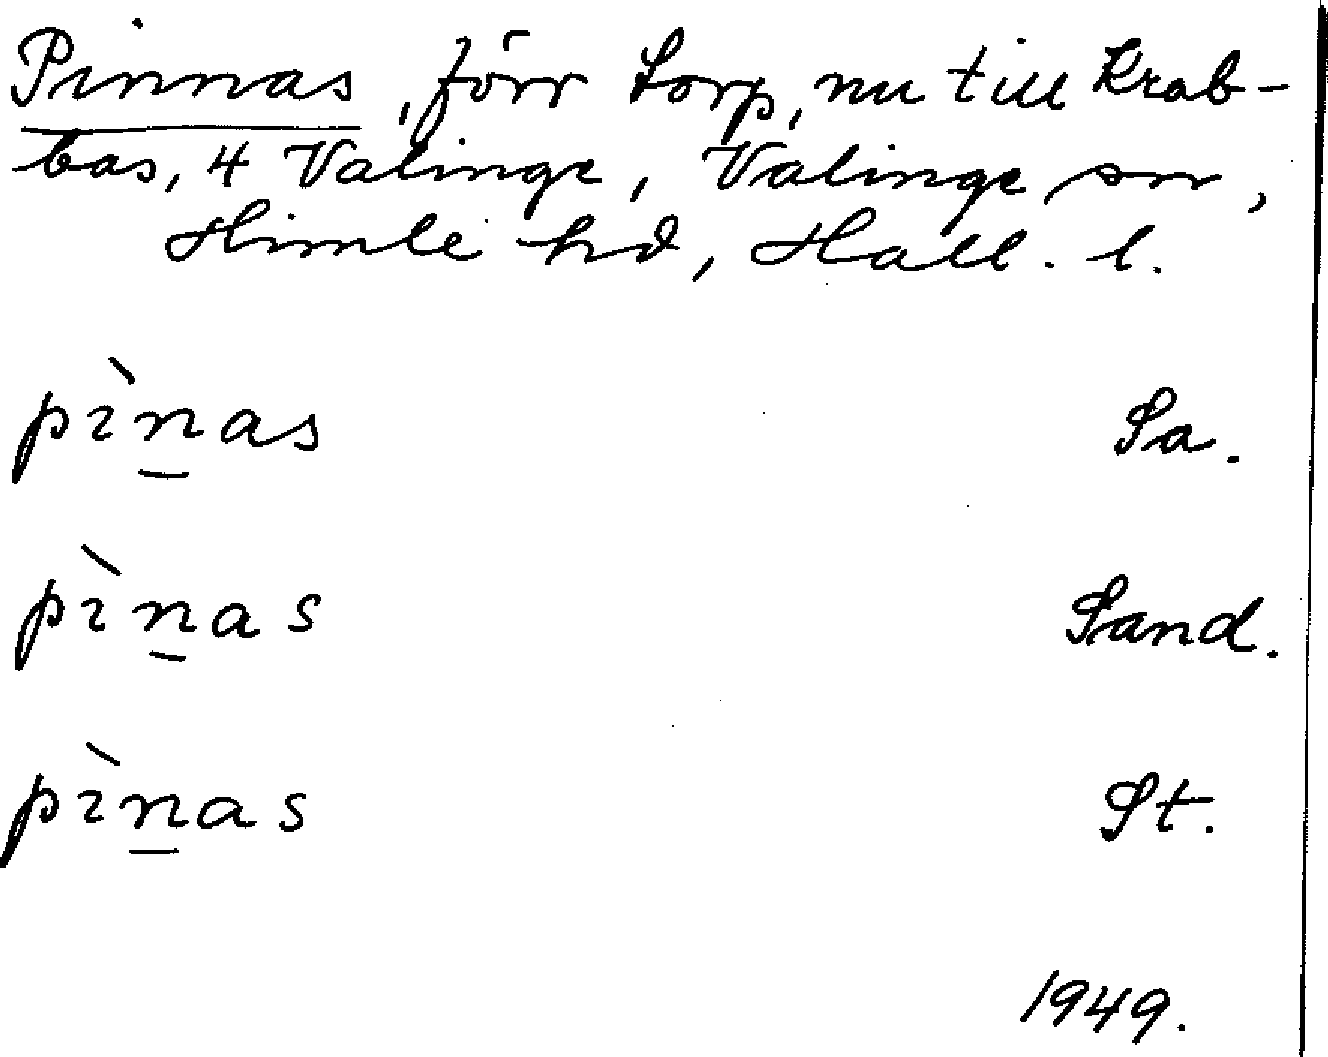 Pinnas, förr torp, nu till Krab-
bas, 4 Valinge, Valinge sn,
Himle hd, Hall. l.
pìn̲as Sa.
pìn̲as Sand.
pìn̲as St.
1949.